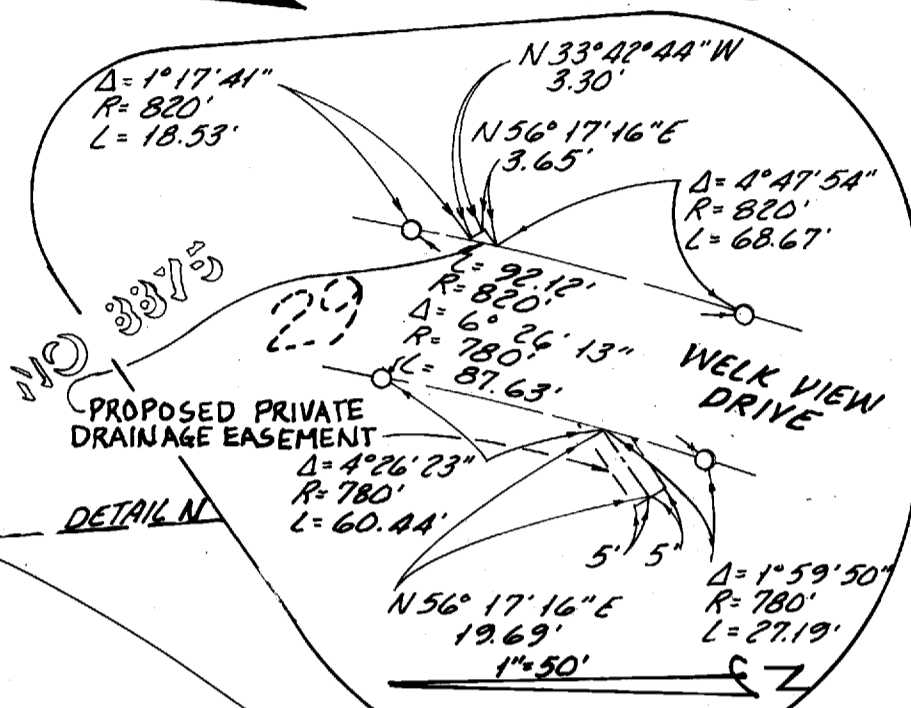 Δ= 1°17'41"
R= 820'
L= 18.53'
N 33°42°44" W
3.30'
N 56° 17' 16" E
3.65'
Δ= 4°47'54"
R= 820'
L= 68.67'
L= 92.12'
R= 820'
Δ= 6° 26' 13"
R= 780'
L= 87.63'
29
WELK VIEW
DRIVE
PROPOSED PRIVATE
DRAINAGE EASEMENT
Δ= 4°26'23"
R= 780'
L= 60.44'
DETAIL N
5' 5"
Δ= 1°59'50"
R= 780'
L= 27.19'
N 56° 17' 16" E
19.69'
1"=50'